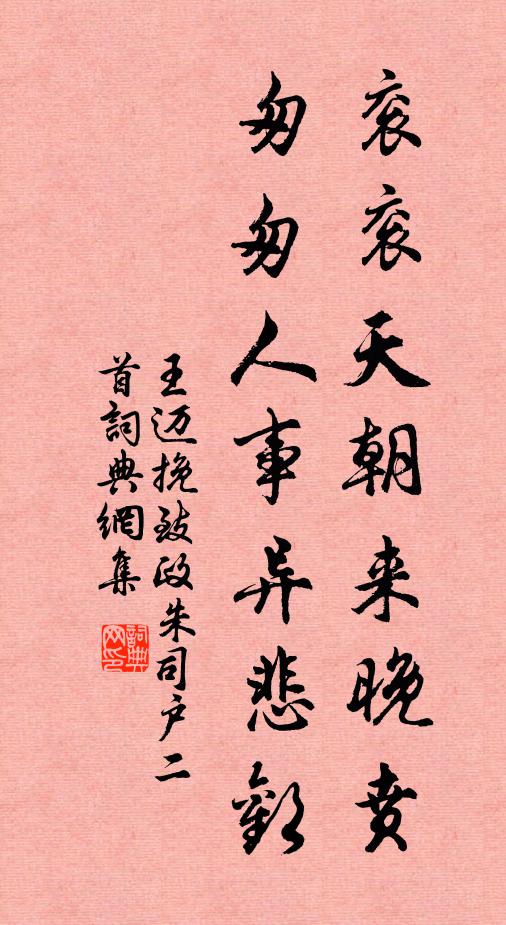 衮衮天朝来晚贲
匆匆人事异悲欢
王迈挽致政朱司户二
首词典网集
词典网印